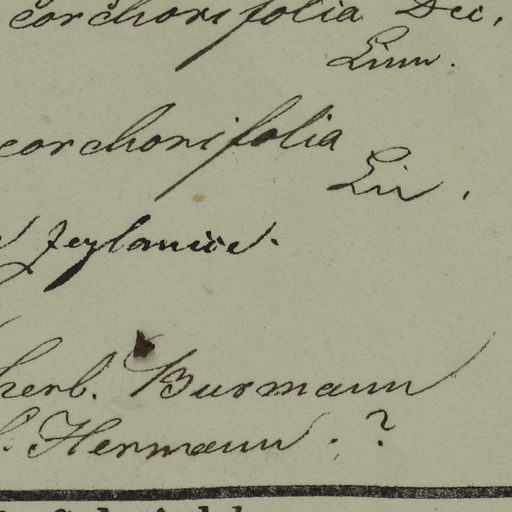 corchorifolia Dec.
Linn.
corchorifolia
Lin.
Zeylanica.
herb. Burmann
Hermann. ?